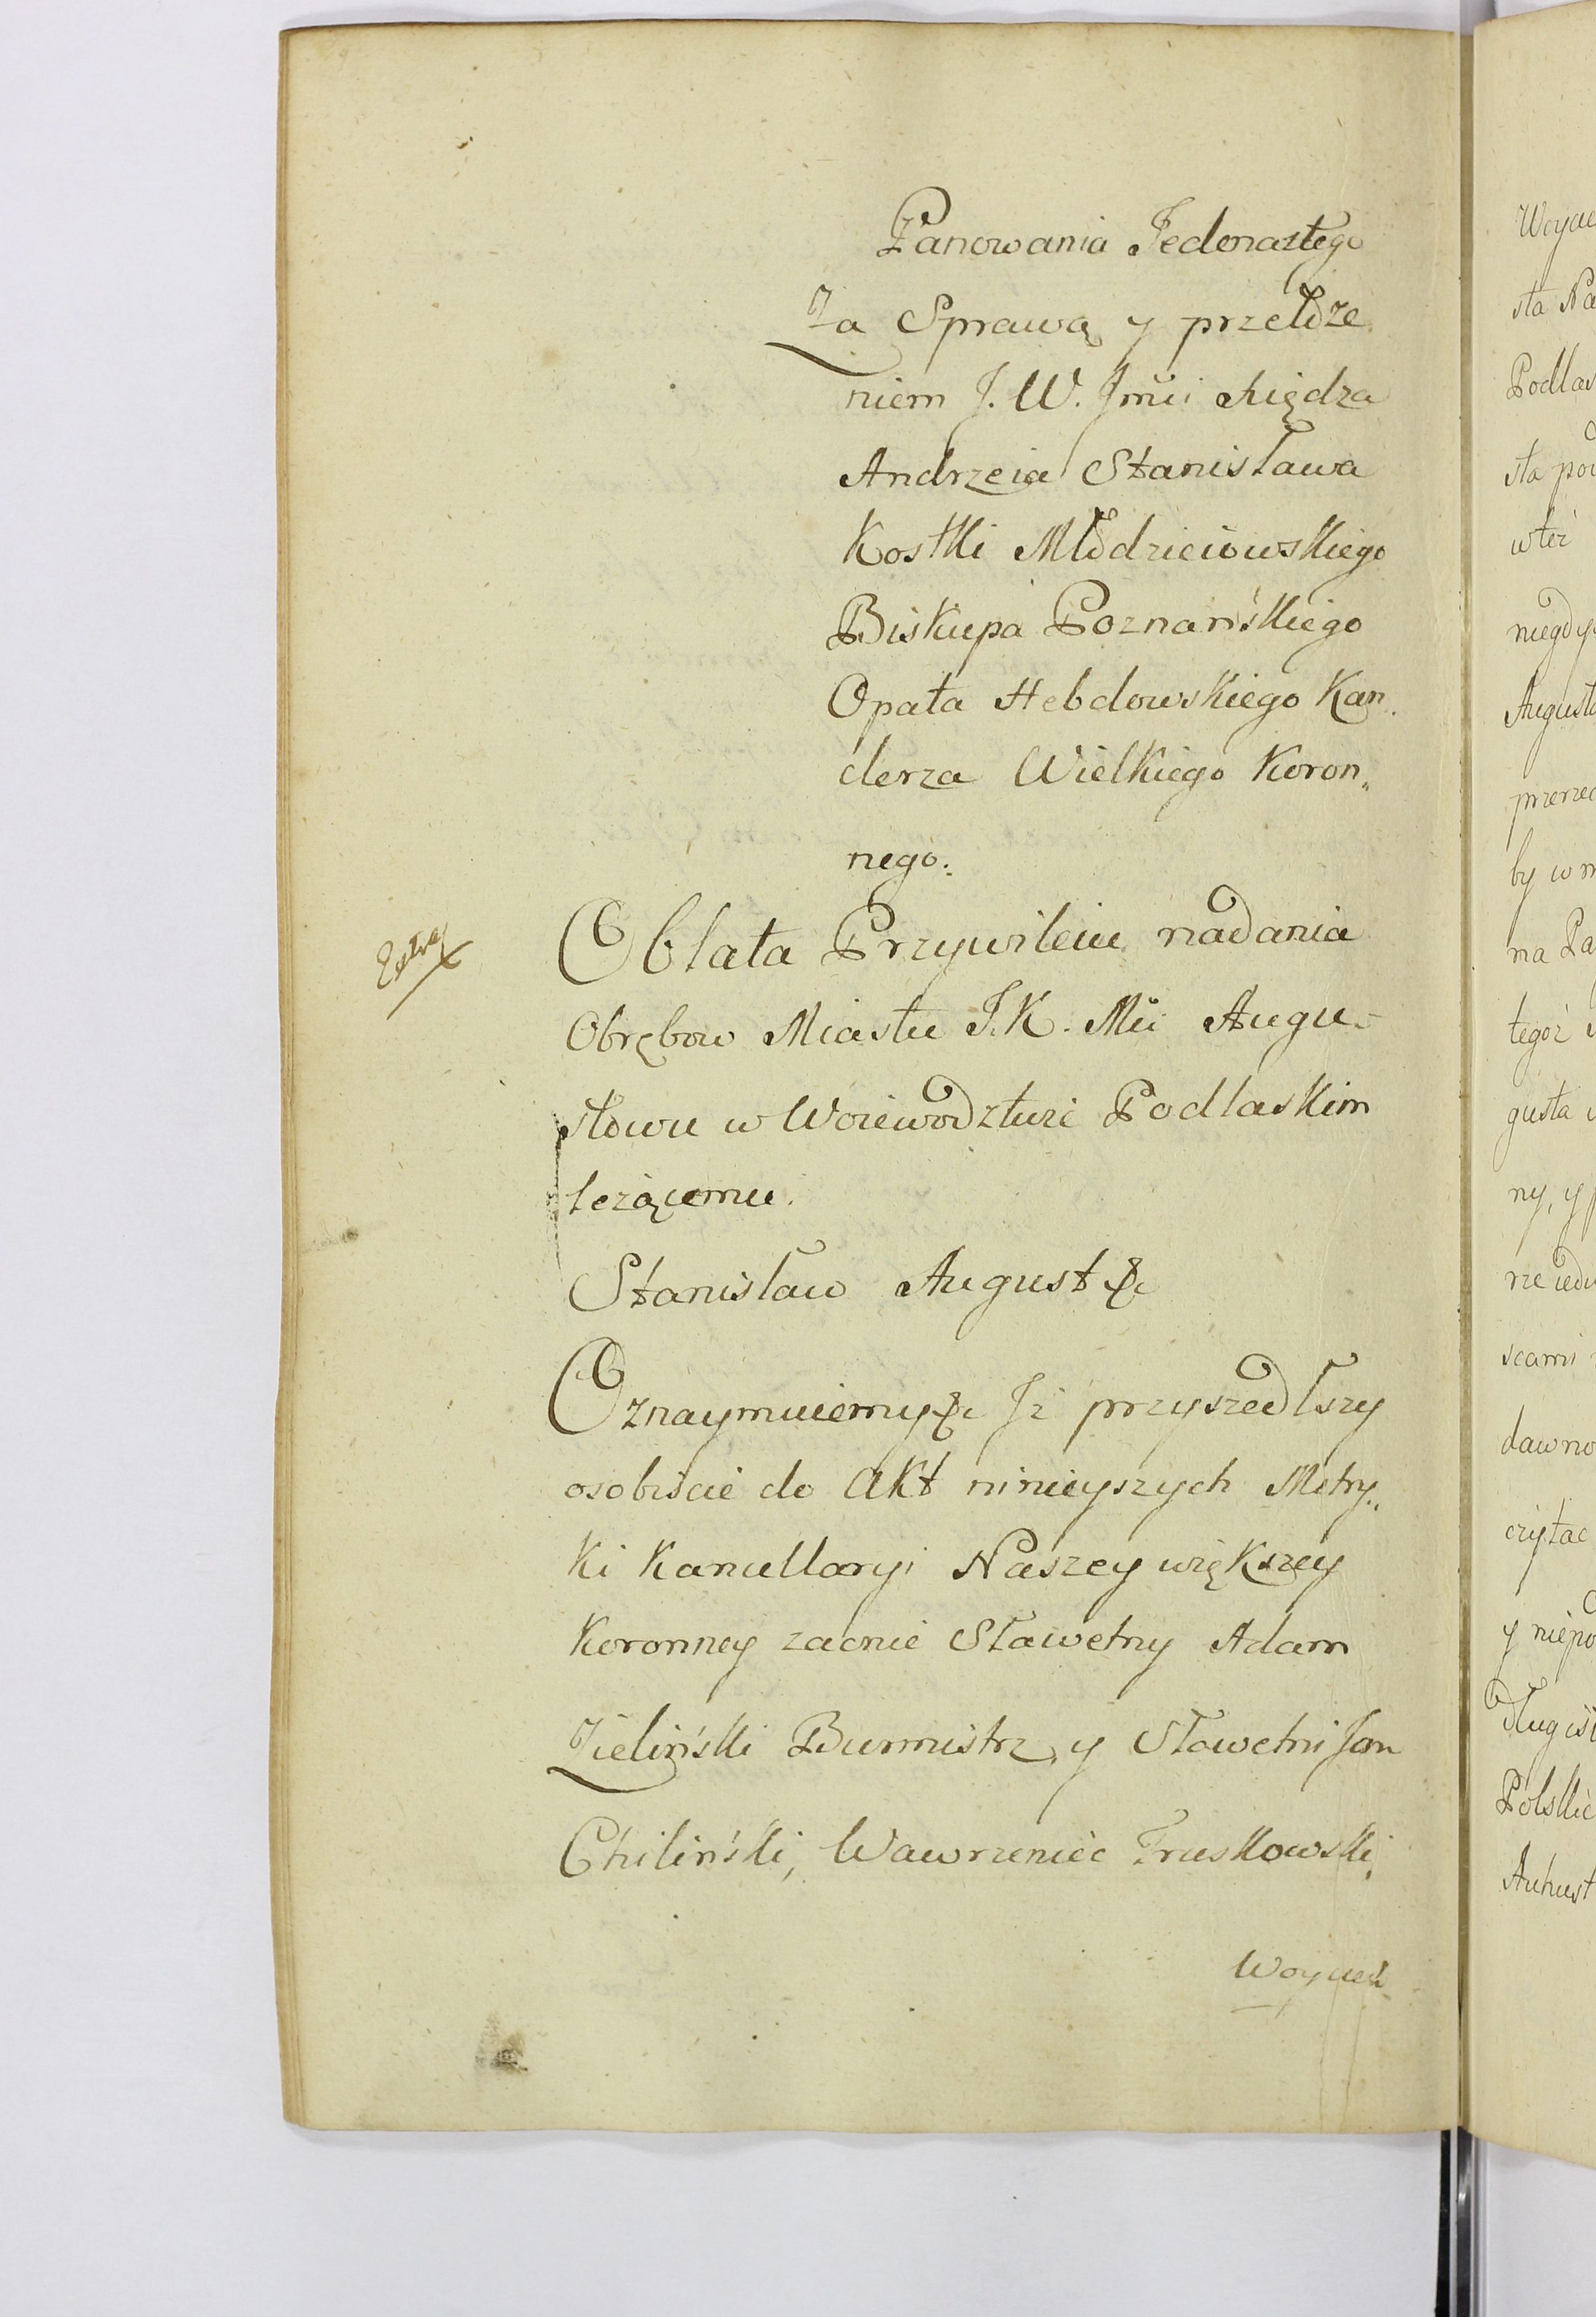 Panowania Jedenastego
Za Sprawą y przełoże
niem J. W. Jmći Xiędza
Andrzeia Stanisława
Kostki Młodzieiowskiego
Biskupa Poznańskiego
Opata Hebdowskiego Kan
clerza Wielkiego Koron„
nego.
Extra
Oblata Przywileiu nadania
Obrębow Miastu J. K. Mći Augu-
stowu w Woiewodztwie Podlaskim
leżącemu.
Stanisław August &c
Oznaymuiemy &c Jż przyszedłszy
osobiście do Akt ninieyszych Metry„
ki Kancellaryi Naszey większey
Koronney zacnie Sławetny Adam
Zieliński Burmistrz, y Sławetni Jan
Chiliński, Wawrzeniec Truskowski,
Woyciech
sta Na
Podlas
sta
niegdy
August
by w
na Pa
tegoż
gusta
ny, y
dawno
czytac
y niepo
Polskie